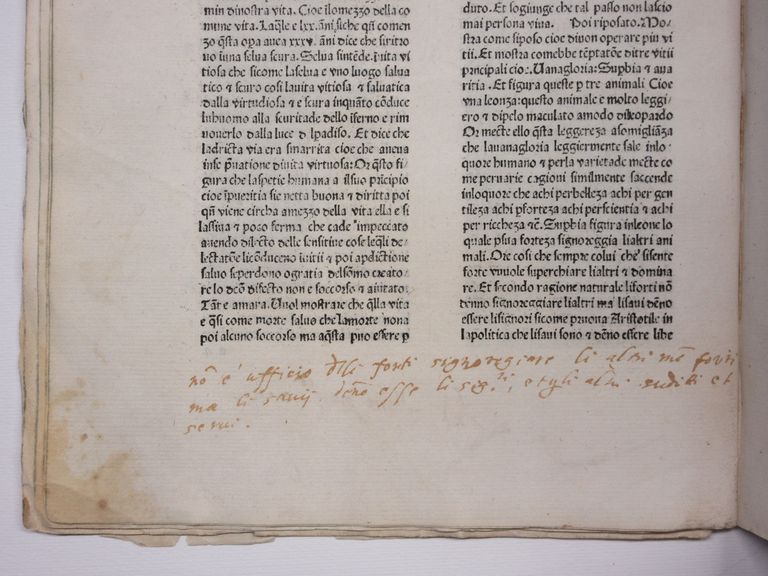 min dinostra vita. Cioe ilomezzo della co
mune vita. Laq̃le e lxx. ãni, siche q̃ñ comen
zo q̃sta opa auea xxxv. ãni dice che siritro
uo ĩuna selua scura. Selua sintẽde. ĩuita vi
tiosa che sicome laselua e vno luogo salua
tico ⁊ scuro cosi lauita vitiosa ⁊ saluatica
dalla virtudiosa ⁊ e scura inquãto cõduce
luhuomo alla scuritade dello iferno e rim
uouerlo dalla luce d lpadiso. Et dice che
ladricta via era smarrita cioe che aueua
inse p̃uatione diuita virtuosa: Or q̃sto fi⸗
gura che laspetie humana a ilsuo prĩcipio
cioe ĩpueritia sie netta buona ⁊ diritta poi
q̃ñ viene circha amezzo della vita ella e si
lassiua ⁊ poco ferma che cade ĩmpeccato
auendo dilecto delle sensitiue cose leq̃li de⸗
lectãte licõduceno iuitii ⁊ poi apdictione
saluo seperdono ogratia delsõmo creato⸗
re lo deõ difecto non e soccorso ⁊ aiutato:
Tãt e amara. Vuol mostrare che q̃lla vita
e q̃si come morte saluo che lamorte nona
poi alcuno soccorso ma aq̃sta puo essere p
duto. Et sogiunge che tal passo non lascio
mai persona viua. Poi riposato. Mo⸗
stra come siposo cioe diuon operare piu vi
tii. Et mostra comebbe tẽptatõe ditre vitii
prĩcipali cioe: Uanagloria: Supbia ⁊ aua
ritia. Et figura queste p tre animali Cioe
vna leonza: questo animale e molto leggi⸗
ero ⁊ dipelo maculato amodo dileopardo
Or mecte ello q̃sta leggereza asomigliãza
che lauanagloria leggiermente sale inlo⸗
quore humano ⁊ perla varietade mecte co
me peruarie cagioni similmente saccende
inloquore che achi perbelleza achi per gen
tileza achi pforteza achi perscientia ⁊ achi
per riccheza ⁊c̃. Supbia figura inleone lo
quale psua forteza signoreggia lialtri ani
mali. Oie cosi che sempre colui che sisente
forte vuuole superchiare lialtri ⁊ domina
re. Et secondo ragione naturale liforti nõ
denno signoreggiare lialtri ma lisaui dẽno
essere lisignori sicome pruoua Aristotile in
lapolitica che lisaui sono ⁊ dẽno essere libe
nõ e' ufficio deli forti signoregiare li altri mẽ forti
ma li sauij dẽno esse li sig.ri, et gli altri sudditi et
serui.